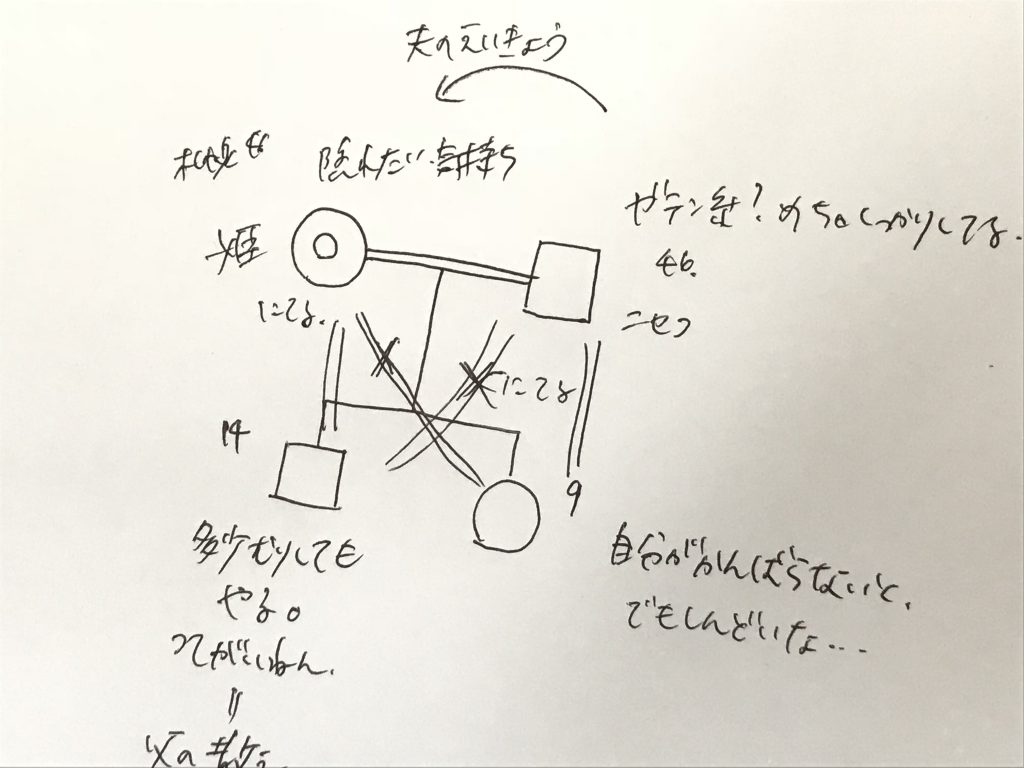 夫のえいきょう
札幌
隠れたい気持ち
ガテン系?めちゃしっかりしてる.
46.
ニセコ
にてる.
にてる
14
9
多少むりしても
やる。
自分ががんばらないと、
でもしんどいな…
父の